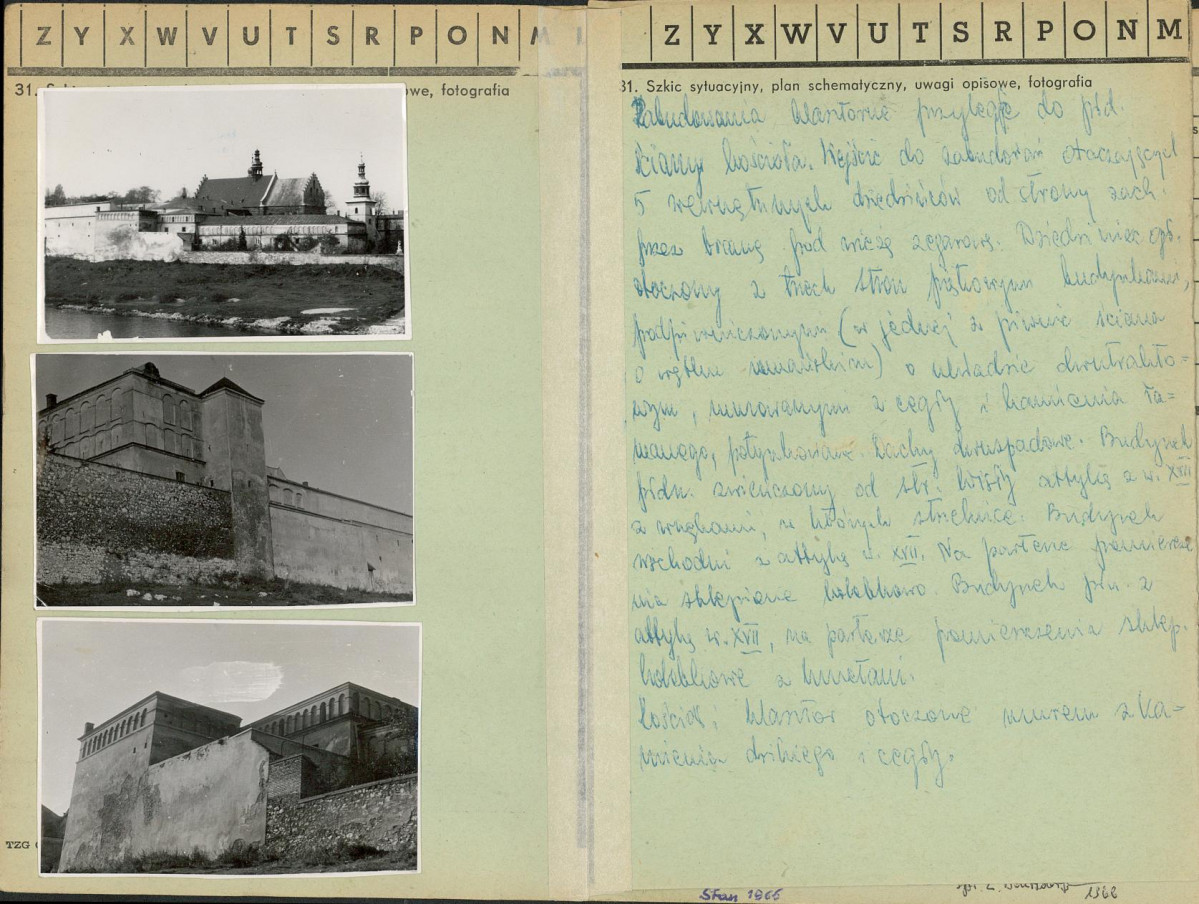 Z Y X W V U T S R P O N M
31.
owe, fotografia
TZG
Z Y X W V U T S R P O N M
31. Szkic sytuacyjny, plan schematyczny, uwagi opisowe, fotografia
Zabudowania klasztorne przylegają do płd.
ściany kościoła. Wejście do zabudowań otaczających
5 wewnętrznych dziedzińców od strony zach.
przez bramę pod wieżą zegarową. Dziedziniec
otoczony z trzech stron piętrowym budynkami,
podpiwniczonym (w jednej z piwnic ściana
o wątku romańskim) o układzie dwutrakto-
wym, murowanym z cegły i kamienia ła-
manego, potynkowane. Dachy dwuspadowe. Budynek
płdn. zwieńczony od str. Wisły attyką z w. XVII
z wnękami, w których strzelnice. Budynek
wschodni z attyką w. XVII. Na parterze pomieszcze
nia sklepione kolebkowo. Budynek płn. z
attyką w. XVII, na parterze pomieszczenia sklep.
kolebkowe z lunetami.
Kościół i klasztor otoczone murem z ka-
mienia dzikiego i cegły.
Stan 1966
1968